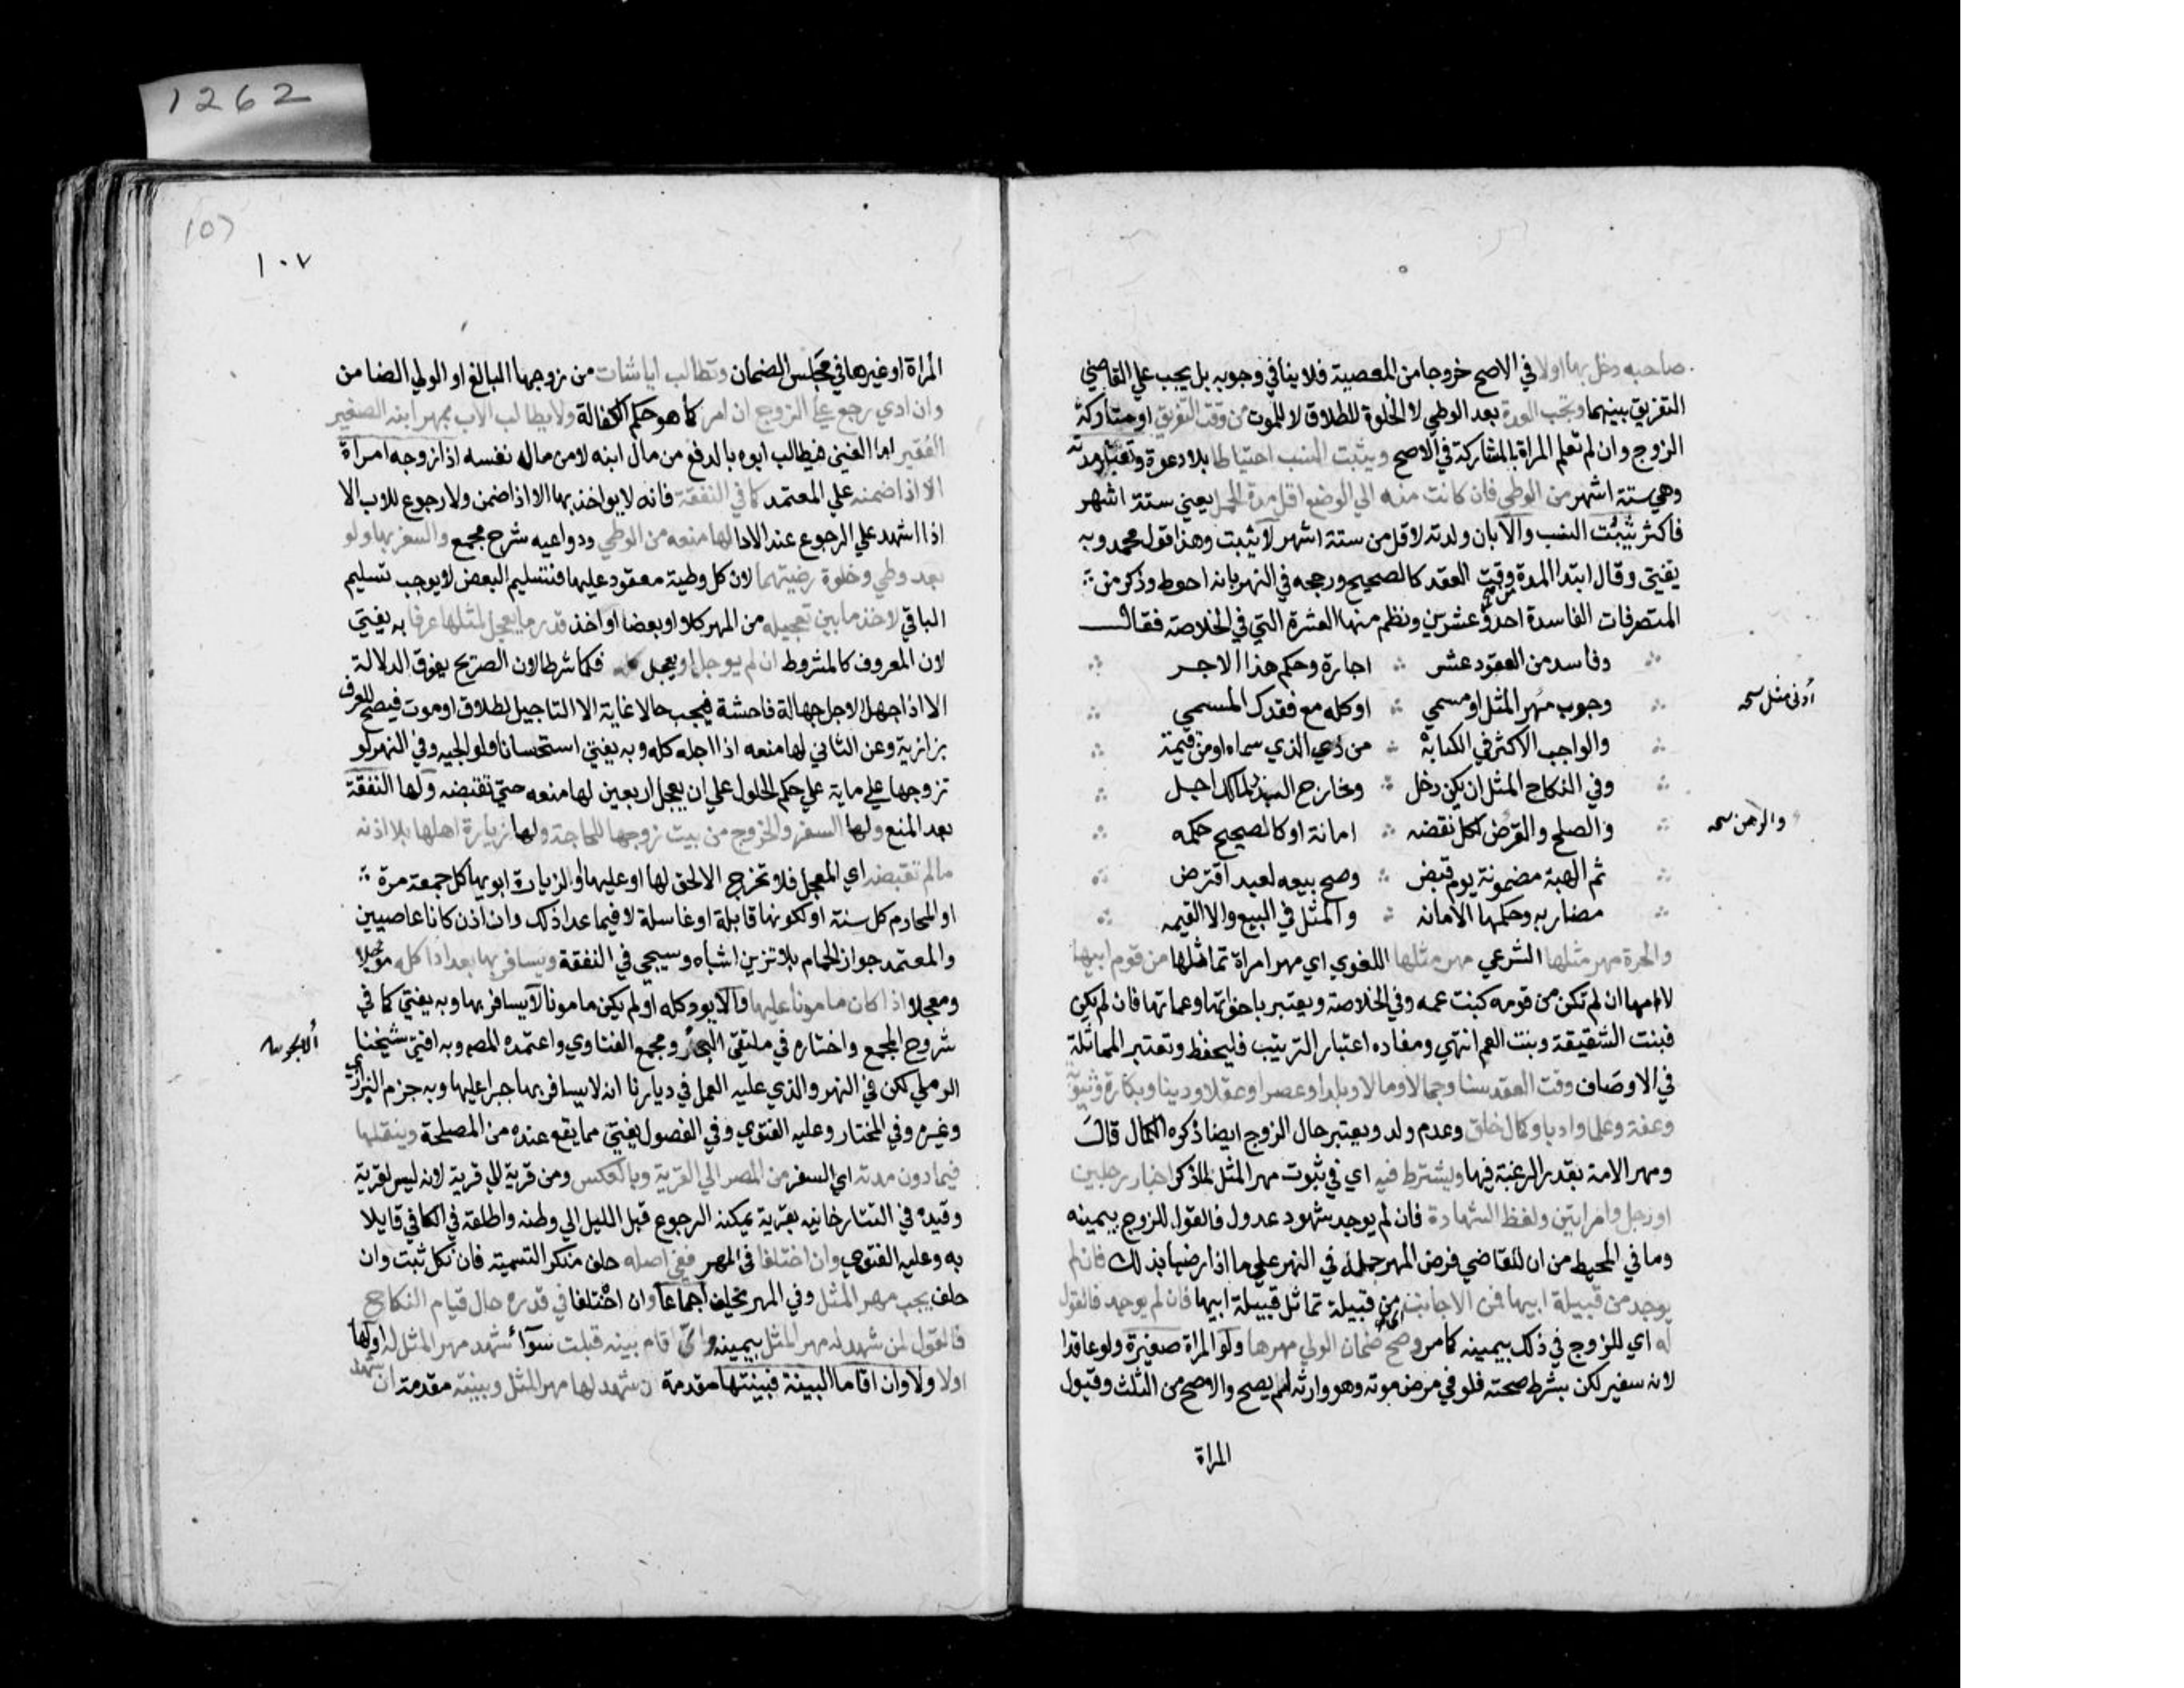 صاحبه دخل بها اولا في الاصح خروجا من المعصية فلا ينافي وجوبه بل يجب علي القاضي
التفريق بينهما وتجب العدة بعد الوطي لا الخلوة للطلاق لا للموت من وقت التفريق او متاركة
الزوج وان لم تعلم المراة بالمتاركة في الاصح ويثبت النسب احتياطا بلا دعوة وتعتبر مدته
وهي ستة اشهر من الوطي فان كانت منه الي الوضع اقل مدة الحمل يعني ستة اشهر
فاكثر يثبت النسب والا بان ولدته لاقل من ستة اشهر لا يثبت وهذا قول محمد وبه
يفتي وقال ابتدا المدة وقت العقد كالصحيح ورجحه في النهر بانه احوط وذكر من
التصرفات الفاسدة احد وعشرين ونظم منها العشرة التي في الخلاصة فقال
وفاسد من العقود عشر اجارة وحكم هذا الاجر
وجوب مهر المثل او مسمي او كله مع فقدك المسمي
ادني مثل نسخه
والواجب الاكثر في الكتابة من ذي الذي سماه او من قيمة
وفي النكاح المثل ان يكن دخل وخارج البذر لمالك اجل
والصلح والقرض لكل نقضه امانة او كالصحيح حكمه
والرهن نسخه
ثم الهبة مضمونة يوم قبض وصح بيعه لعبد اقترض
مضاربه وحكمها الامانه والمثل في البيع والا القيمه
والحرة مهر مثلها الشرعي مهر مثلها اللغوي اي مهر امراة تماثلها من قوم ابيها
لا امها ان لم تكن من قومه كبنت عمه وفي الخلاصة ويعتبر باخواتها وعماتها فان لم يكن
فبنت الشقيقة وبنت العم انتهي ومفاده اعتبار الترتيب فليحفظ وتعتبر المماثلة
في الاوصاف وقت العقد سنا وجمالا ومالا وبلدا وعصرا وعقلا ودينا وبكارة وثيوبة
وعفة وعلما وادبا وكمال خلق وعدم ولد ويعتبر حال الزوج ايضا ذكره الكمال قال
ومهر الامة بقدر الرغبة فيها ويشترط فيه اي في ثبوت مهر المثل لما ذكر اخبار رجلين
او رجل وامراتين ولفظ الشهادة فان لم يوجد شهود عدول فالقول للزوج بيمينه
وما في المحيط من ان للقاضي فرض المهر حمله في النهر علي ما اذا رضيا بذلك فان لم
يوجد من قبيلة ابيها فمن الاجانب اي من قبيلة تماثل قبيلة ابيها فان لم يوجد فالقول
له اي للزوج في ذلك بيمينه كما مر وصح ضمان الولي مهرها ولو المراة صغيرة ولو عاقدا
لانه سفير لكن بشرط صحته فلو في مرض موته وهو وارثه لم يصح والا صح من الثلث وقبول
المراة
١٠٧
المراة او غيرها في مجلس الضمان وتطالب ايا شات من زوجها البالغ او الولي الضامن
وان ادي رجع علي الزوج ان امر كما هو حكم الكفالة ولا يطالب الاب بمهر ابنه الصغير
الفقير اما الغني فيطالب ابوه بالدفع من مال ابنه لا من مال نفسه اذا زوجه امراة
الا اذا ضمنه علي المعتمد كما في النفقة فانه لا يواخذ بها الا اذا ضمن ولا رجوع للاب الا
اذا اشهد علي الرجوع عند الادا لها منعه من الوطي ودواعيه شرح مجمع والسفر بها ولو
بعد وطي وخلوة رضيتهما لان كل وطية معقود عليها فتسليم البعض لا يوجب تسليم
الباقي لاخذ ما بين تعجيله من المهر كلا او بعضا او اخذ قدر ما يعجل لمثلها عرفا به يفتي
لان المعروف كالمشروط ان لم يوجل او يعجل كله فكما شرطا لان الصريح يفوق الدلالة
الا اذا جهل الاجل جهالة فاحشة فيجب حالا غاية الا التاجيل لطلاق او موت فيصح للعرف
بزازية وعن الثاني لها منعه اذا اجله كله وبه يفتي استحسانا ولوالجيه وفي النهر لو
تزوجها علي ماية علي حكم الحلول علي ان يعجل اربعين لها منعه حتي تقبضه ولها النفقة
بعد المنع ولها السفر والخروج من بيت زوجها للحاجة ولها زيارة اهلها بلا اذنه
ما لم تقبضه اي المعجل فلا تخرج الا لحق لها او عليها او لزيارة ابويها كل جمعة مرة
او المحارم كل سنة او لكونها قابلة او غاسلة لا فيما عدا ذلك وان اذن كانا عاصيين
والمعتمد جواز الحمام بلا تزين اشباه وسيجي في النفقة ويسافر بها بعد ادا كله موجلا
ومعجلا اذا كان مامونا عليها والا يود كله او لم يكن مامونا لا يسافر بها وبه يفتي كما في
شروح المجمع واختاره في ملتقي البحر ومجمع الفتاوي واعتمده المصه وبه افتي شيخنا
الابحر
الرملي لكن في النهر والذي عليه العمل في ديارنا انه لا يسافر بها جبرا عليها وبه جزم البزازي
وغيره وفي المختار وعليه الفتوي وفي الفصول يفتي مما يقع عنده من المصلحة وينقلها
فيما دون مدته اي السفر من المصر الي القرية وبالعكس ومن قرية الي قرية لانه ليس لقرية
وقيده في التتارخانيه بقرية يمكنه الرجوع قبل الليل الي وطنه واطلقه في الكافي قايلا
به وعليه الفتوي وان اختلفا في المهر ففي اصله حلف منكر التسمية فان نكل ثبت وان
حلف يجب مهر المثل وفي المهر يحلف اجماعا وان اختلفا في قدره حال قيام النكاح
فالقول لمن شهد له مهر المثل بيمينه واي اقام بينه قبلت سوآ شهد مهر المثل له او لها
اولا ولا وان اقاما البينة فبينتها مقدمة ان شهد لها مهر المثل وبينته مقدمة ان شهد
1262
107